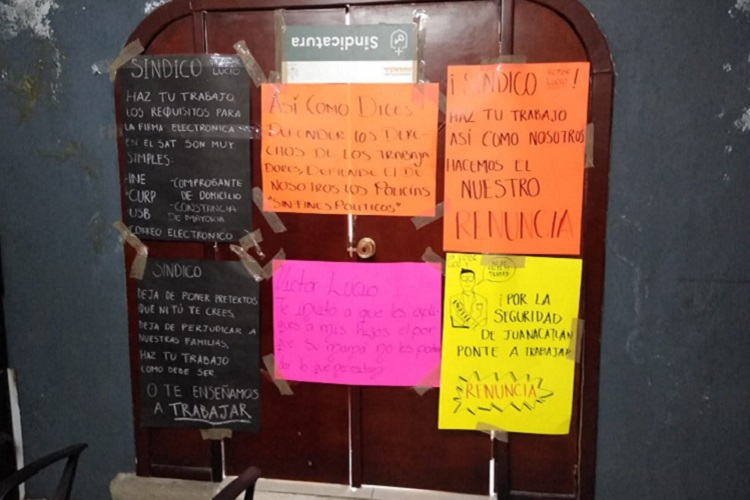 Sindicatura
SINDICO LUCIO
HAZ TU TRABAJO
LOS REQUISITOS PARA
LA FIRMA ELECTRONICA
EN EL SAT SON MUY
SIMPLES:
-INE
-CURP
USB
-COMPROBANTE
DE DOMICILIO
-CONSTANCIA
DE MAYORIA
CORREO ELECTRONICO
ASÍ COMO DICES
DEFENDER LOS DERE-
CHOS DE LOS TRABAJA
DORES, DEFIENDE EL DE
NOSOTROS LOS POLICÍAS
"SIN FINES POLITICOS"
¡SINDICO VICTOR LUCIO!
HAZ TU TRABAJO
ASÍ COMO NOSOTROS
HACEMOS EL
NUESTRO
RENUNCIA
SINDICO
DEJA DE PONER PRETEXTOS
QUE NI TÚ TE CREES,
DEJA DE PERJUDICAR A
NUESTRAS FAMILIAS,
HAZ TU TRABAJO
COMO DEBE SER
O TE ENSEÑAMOS
A TRABAJAR
Victor Lucio
Te invito a que les expli-
ques a mis hijos el por
que su mamá no les puede
dar lo que necesitan
¡POR LA
SEGURIDAD
DE JUANACATLÁN
PONTE A TRABAJAR
RENUNCIA